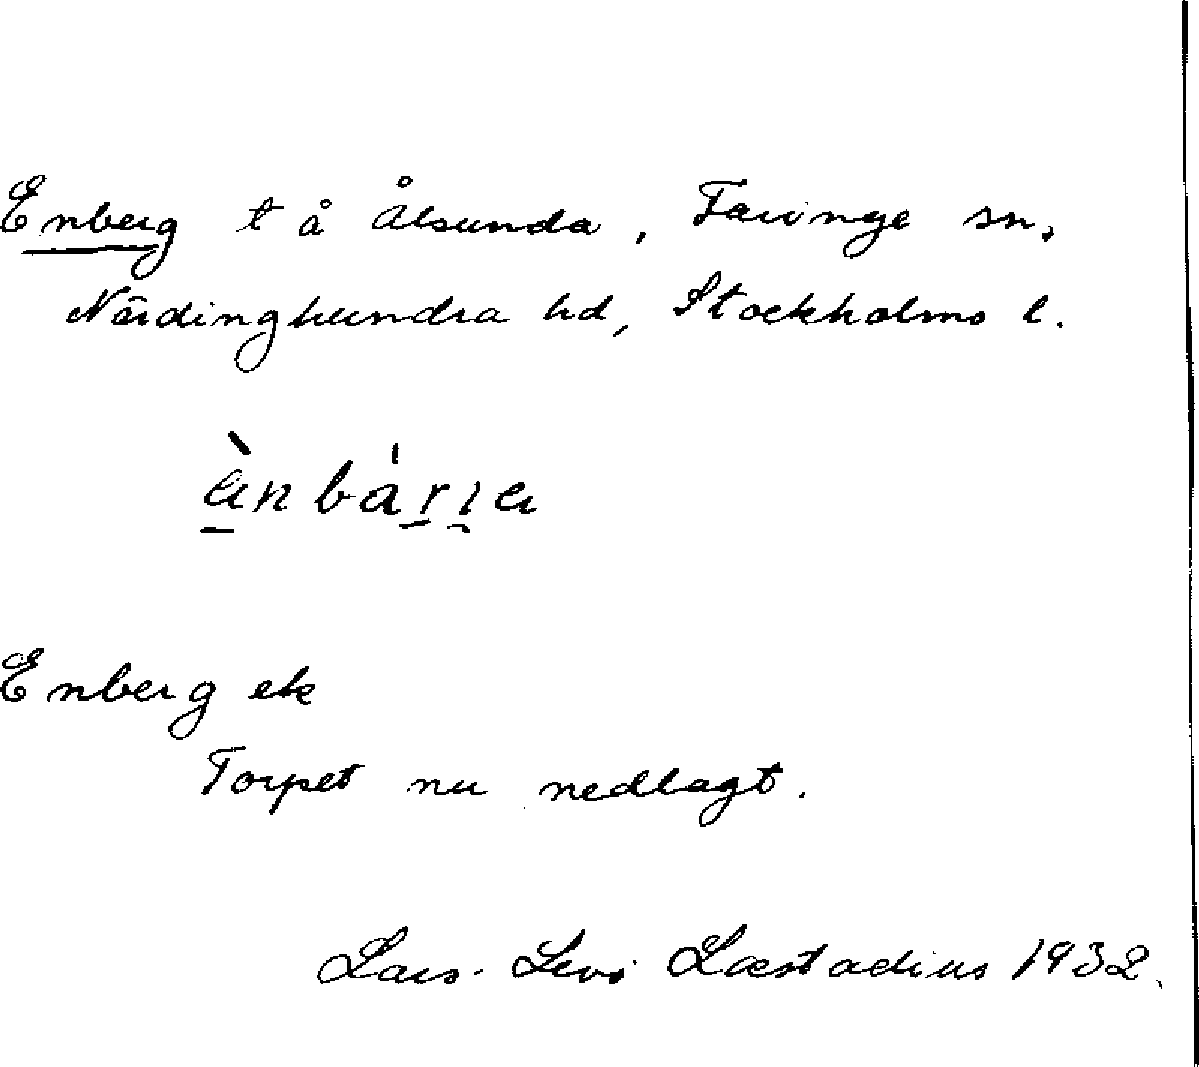 Enberg t å Ålsunda, Faringe sn,
Närdinghundra hd, Stockholms l.
Enberg ek
Torpet nu nedlagt.
Lars-Levi Læstadius 1932.